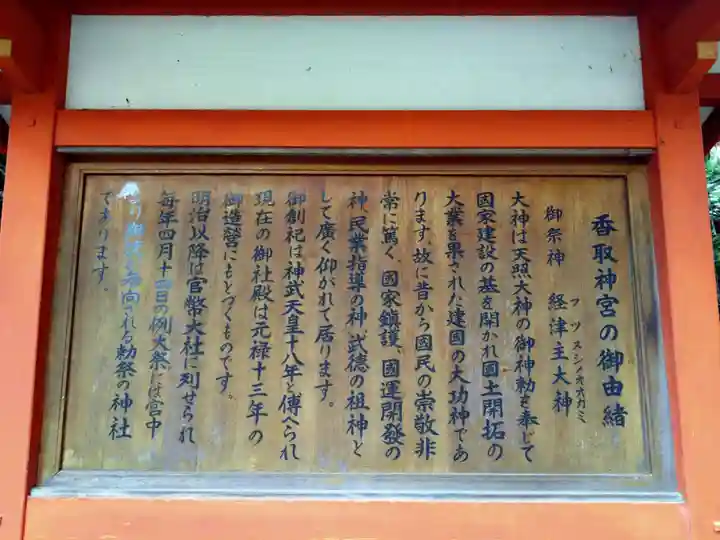 香取神宮の御由緒
御祭神 経津主大神
フツヌシノオオカミ
大神は天照大神の御神勅を奉じて
國家建設の基を開かれ國土開拓の
大業を果された建國の大功神であ
ります、故に昔から國民の崇敬非
常に篤く、國家鎮護、國運開發の
神、民業指導の神、武徳の祖神と
して廣く仰がれて居ります。
御創祀は神武天皇十八年と傳へられ
現在の御社殿は元禄十三年の
御造營にもとづくものです。
明治以降は官幣大社に列せられ
毎年四月十四日の例大祭には宮中
より御
される勅祭の神社
であります。